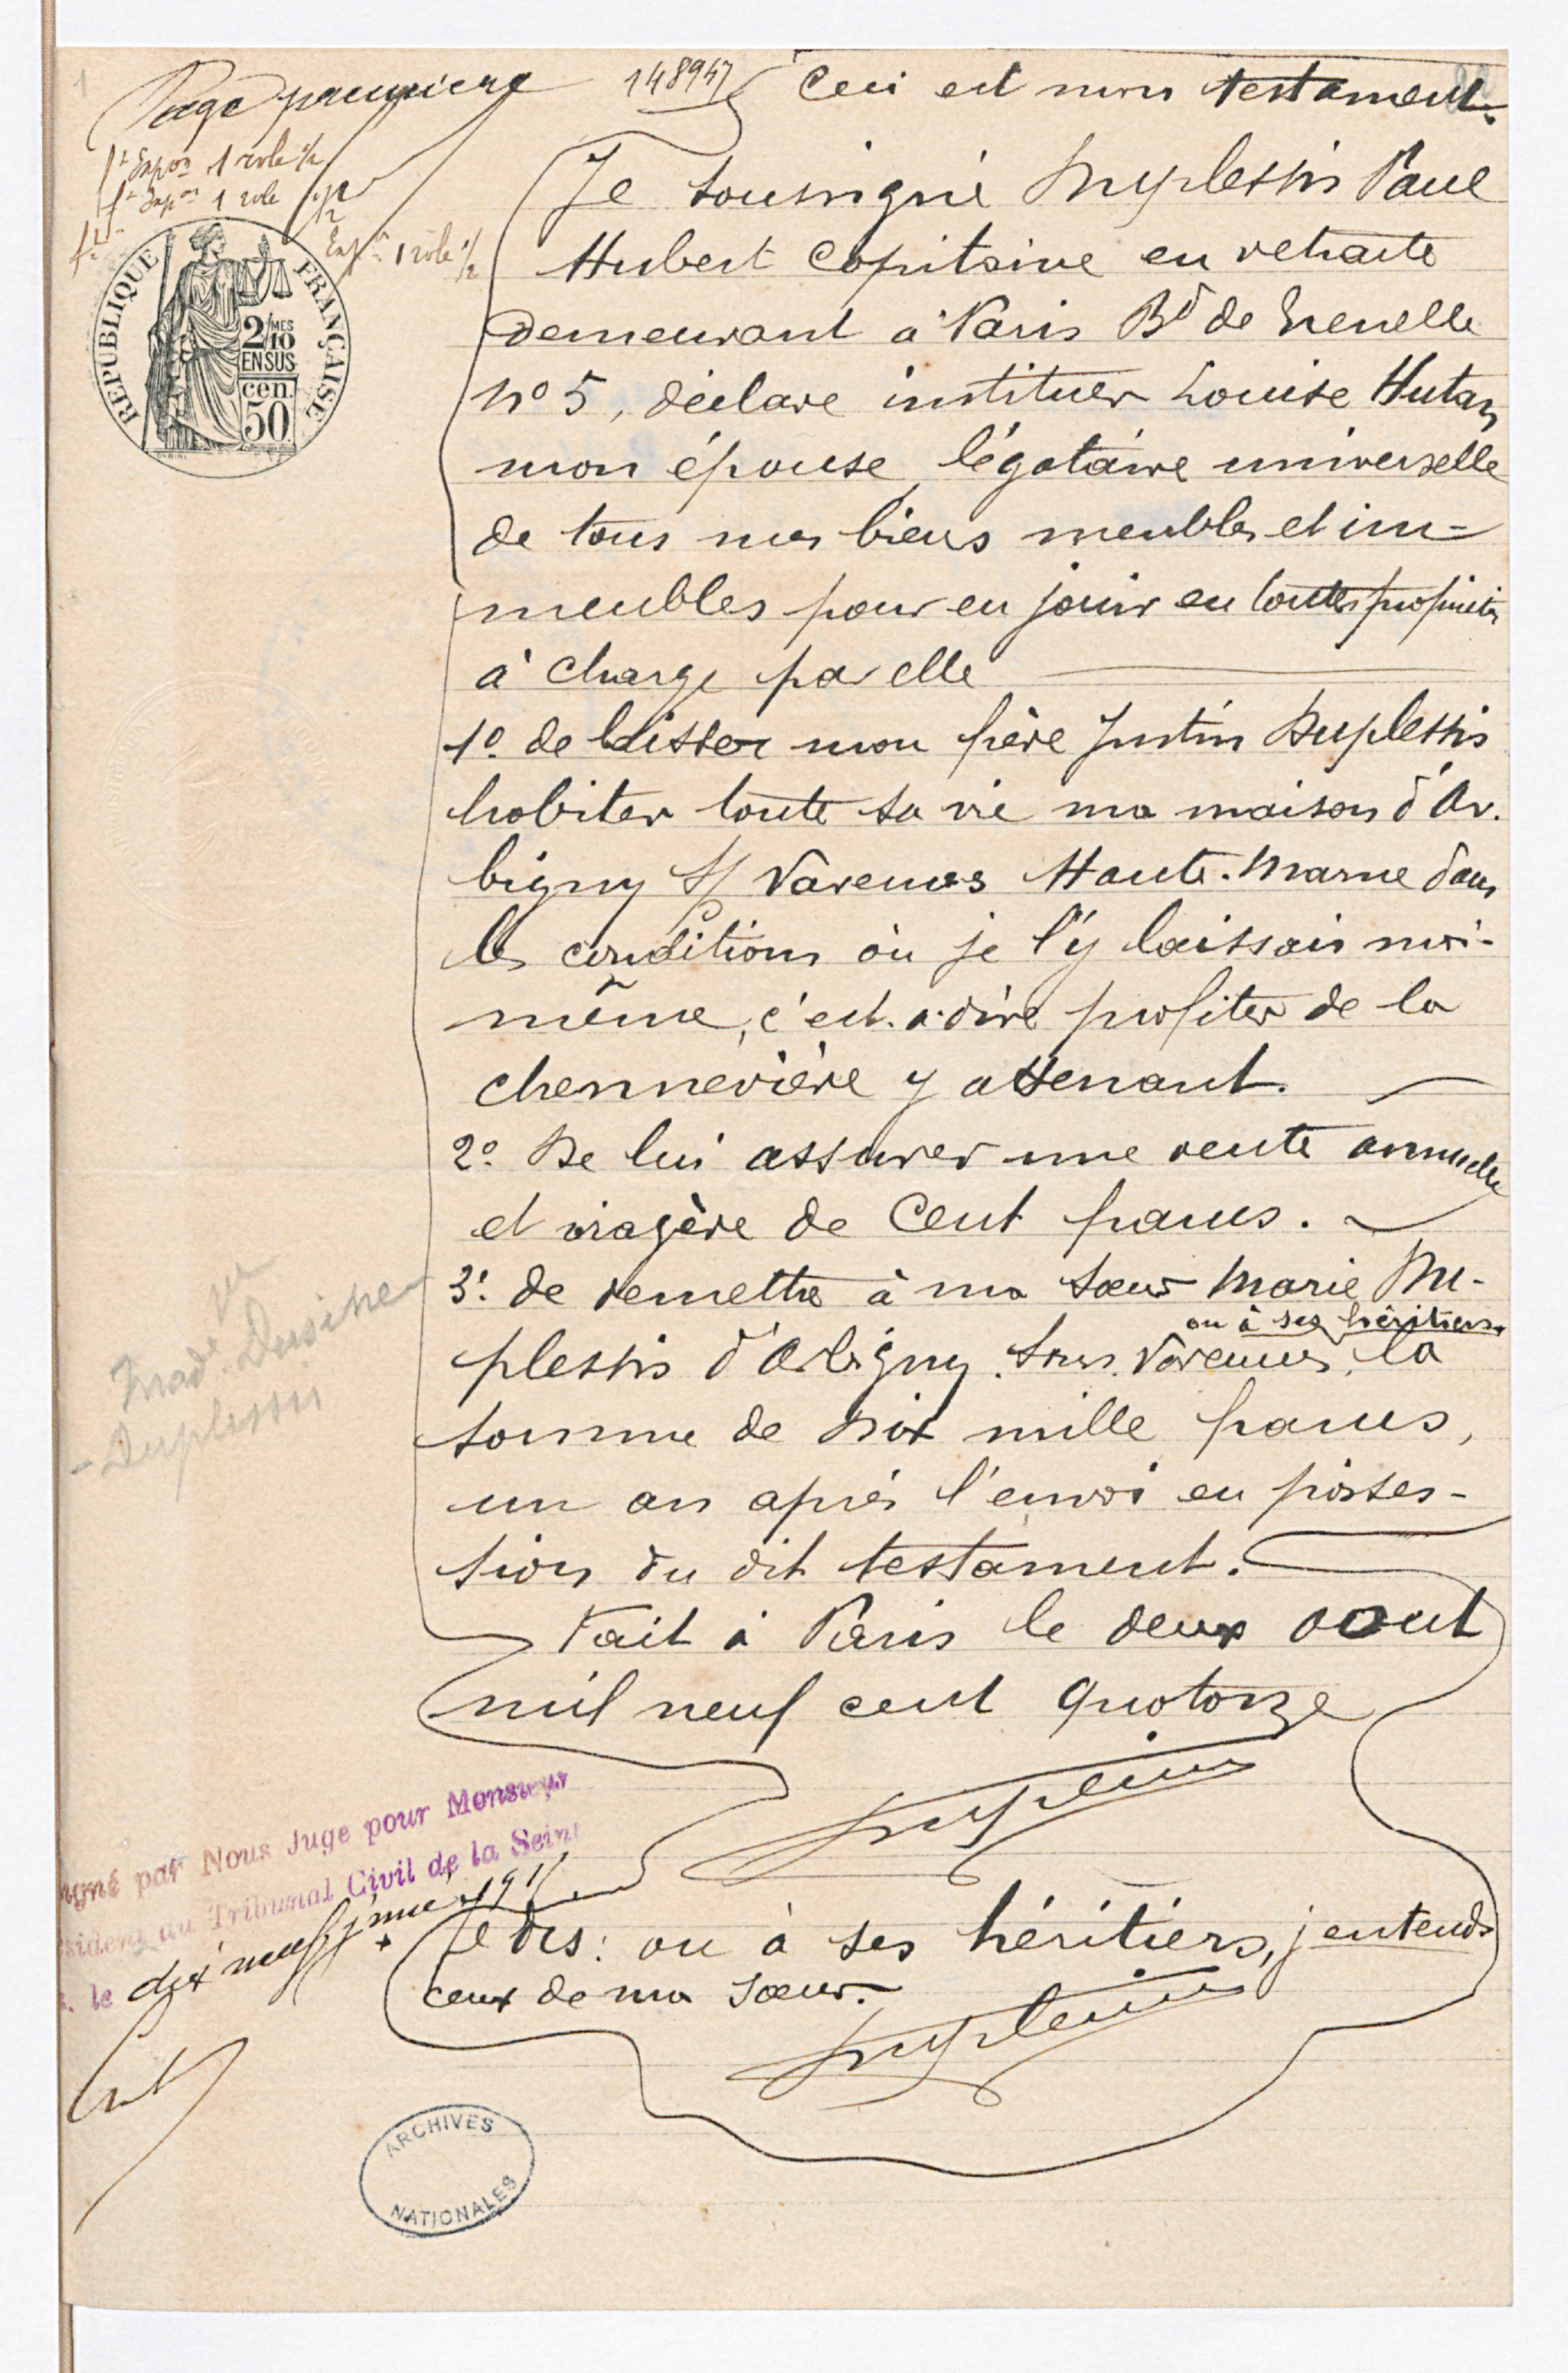 1
Page première
148947
Ceci est mon testament.
ft Expon 1 role 1/2
ft Expon 1 role 1/2
Expon 1 role 1/2
RÉPUBLIQUE FRANÇAISE
2/10 MES
EN SUS
cen.
50
Je soussigné Duplessis Paul
Hubert Capitaine en retraite
demeurant à Paris Bd de Grenelle
no 5, déclare instituer Louise Hutan
mon épouse, légataire universelle
de tous mes biens meubles et im=
meubles pour en jouir en toutes propriétés
à charge par elle
1o. de laisser mon frère Justin Duplessis
habiter toute sa vie ma maison d'Ar.
bigny s/ Varennes Haute-Marne dans
les conditions où je l'y laissais moi-
même, c'est-à-dire profiter de la
chennevière y attenant.
2o. De lui assurer une rente annuelle
et viagère de Cent francs.
3o. de remettre à ma sœur Marie Du-
ou à ses héritiers
plessis d'Arbigny. sous. Varennes, la
somme de dix mille francs,
un an après l'envoi en posses-
sion du dit testament.
Fait à Paris le deux aout
mil neuf cent quatorze
Duplessis
Made Vve
Duplessis
signé par Nous Juge pour Monsieur
sident du Tribunal Civil de la Seine
le dix neuf
+ Je dis: ou à ses héritiers, j'entends
ceux de ma sœur.
Duplessis
ARCHIVES
NATIONALES